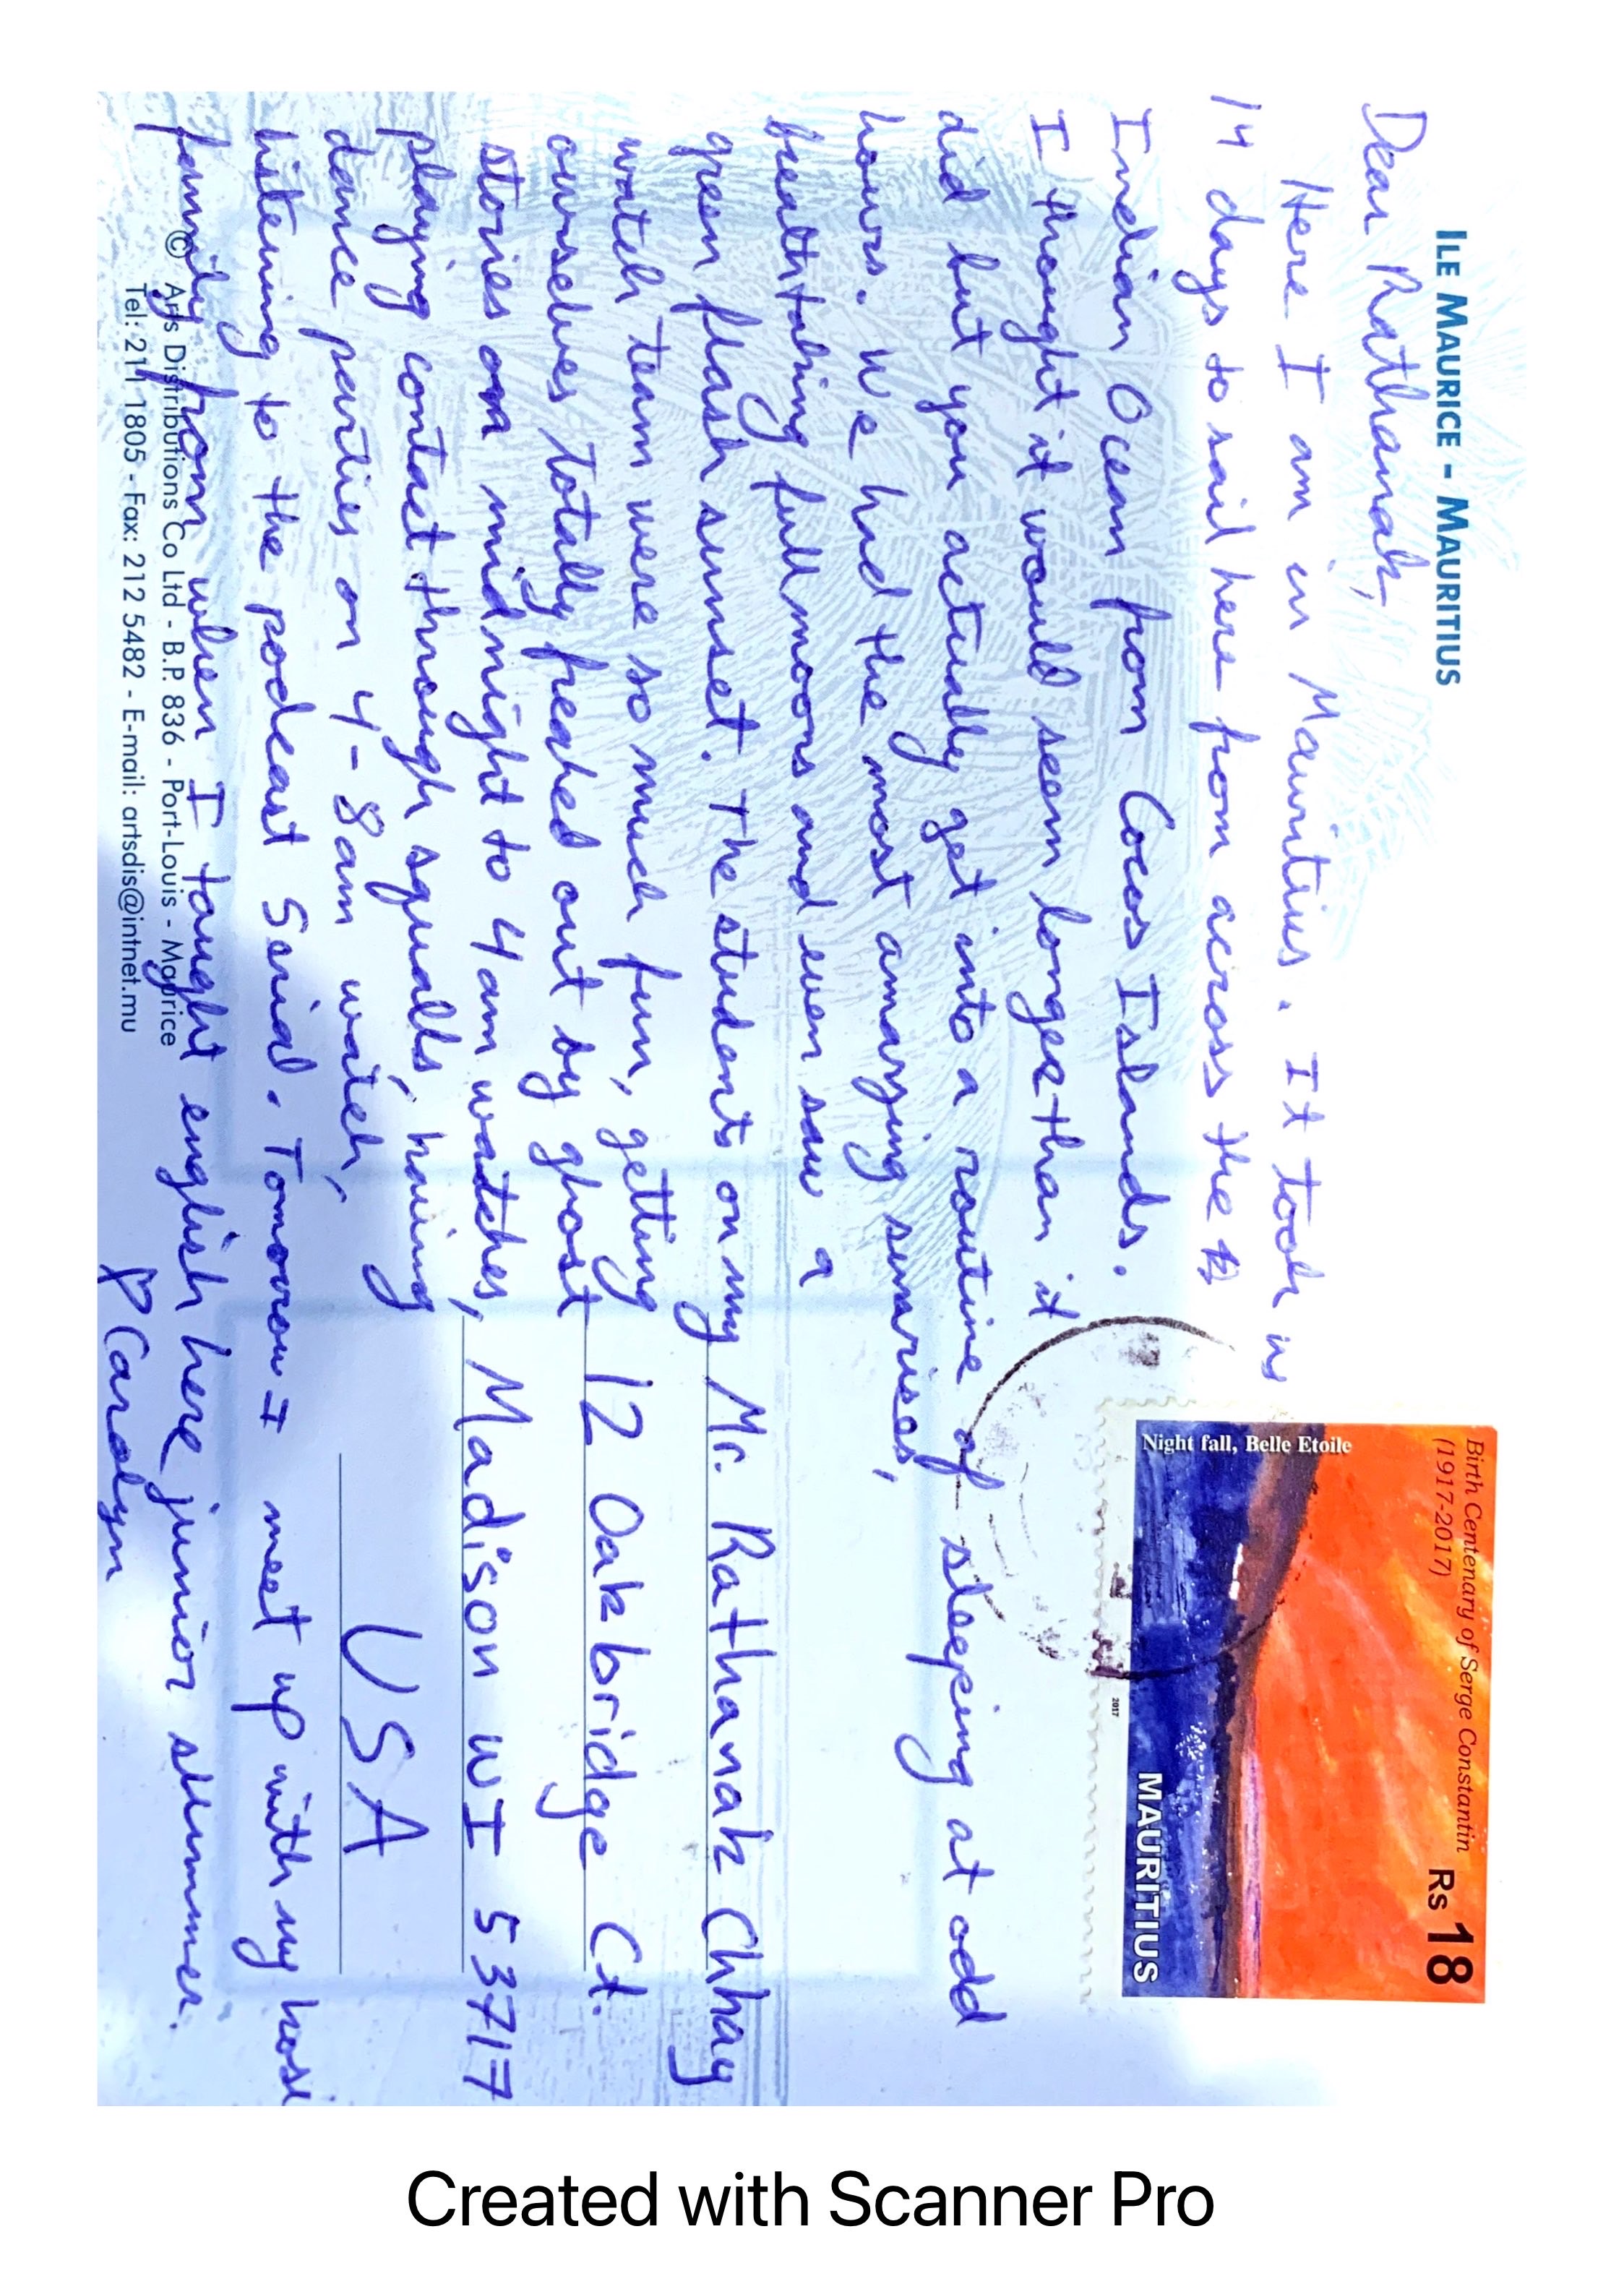 ILE MAURICE - MAURITIUS
Dear Rathanak,
Here I am in Mauritius. It took us
14 days to sail here from across the
Indian Ocean from Cocos Islands.
I thought it would seem longer than it
did but you actually get into a routine of sleeping at odd
hours. We had the most amazing sunrises,
breathtaking full moons and even saw a
green flash sunset. The students on my
watch team were so much fun, getting
ourselves totally freaked out by ghost
stories on midnight to 4am watches,
playing contact through squalls, having
dance parties on 4-8am watch,
listening to the podcast Serial. Tomorrow I meet up with my host
family from when I taught english here junior summer.
♡ Carolyn
Birth Centenary of Serge Constantin
(1917-2017)
Rs 18
Night fall, Belle Etoile
MAURITIUS
2017
Mr. Rathanak Chhay
12 Oakbridge Ct.
Madison WI 53717
USA
© Arts Distributions Co Ltd - B.P. 836 - Port-Louis - Maurice
Tel: 211 1805 - Fax: 212 5482 - E-mail: artsdis@intnet.mu
Created with Scanner Pro